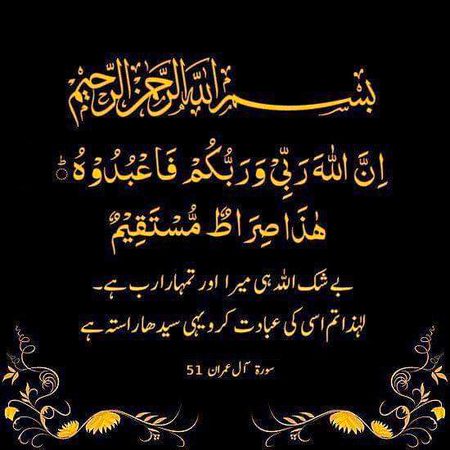 بسم الله الرحمن الرحيم
اِنَّ اللّٰهَ رَبِّىۡ وَرَبُّكُمۡ فَاعۡبُدُوۡهُ‌ ؕ
هٰذَا صِرَاطٌ مُّسۡتَقِيۡمٌ
بے شک اللہ ہی میرا اور تمہارا رب ہے۔
لہٰذا تم اسی کی عبادت کرو یہی سیدھا راستہ ہے
سورۃ آل عمران 51